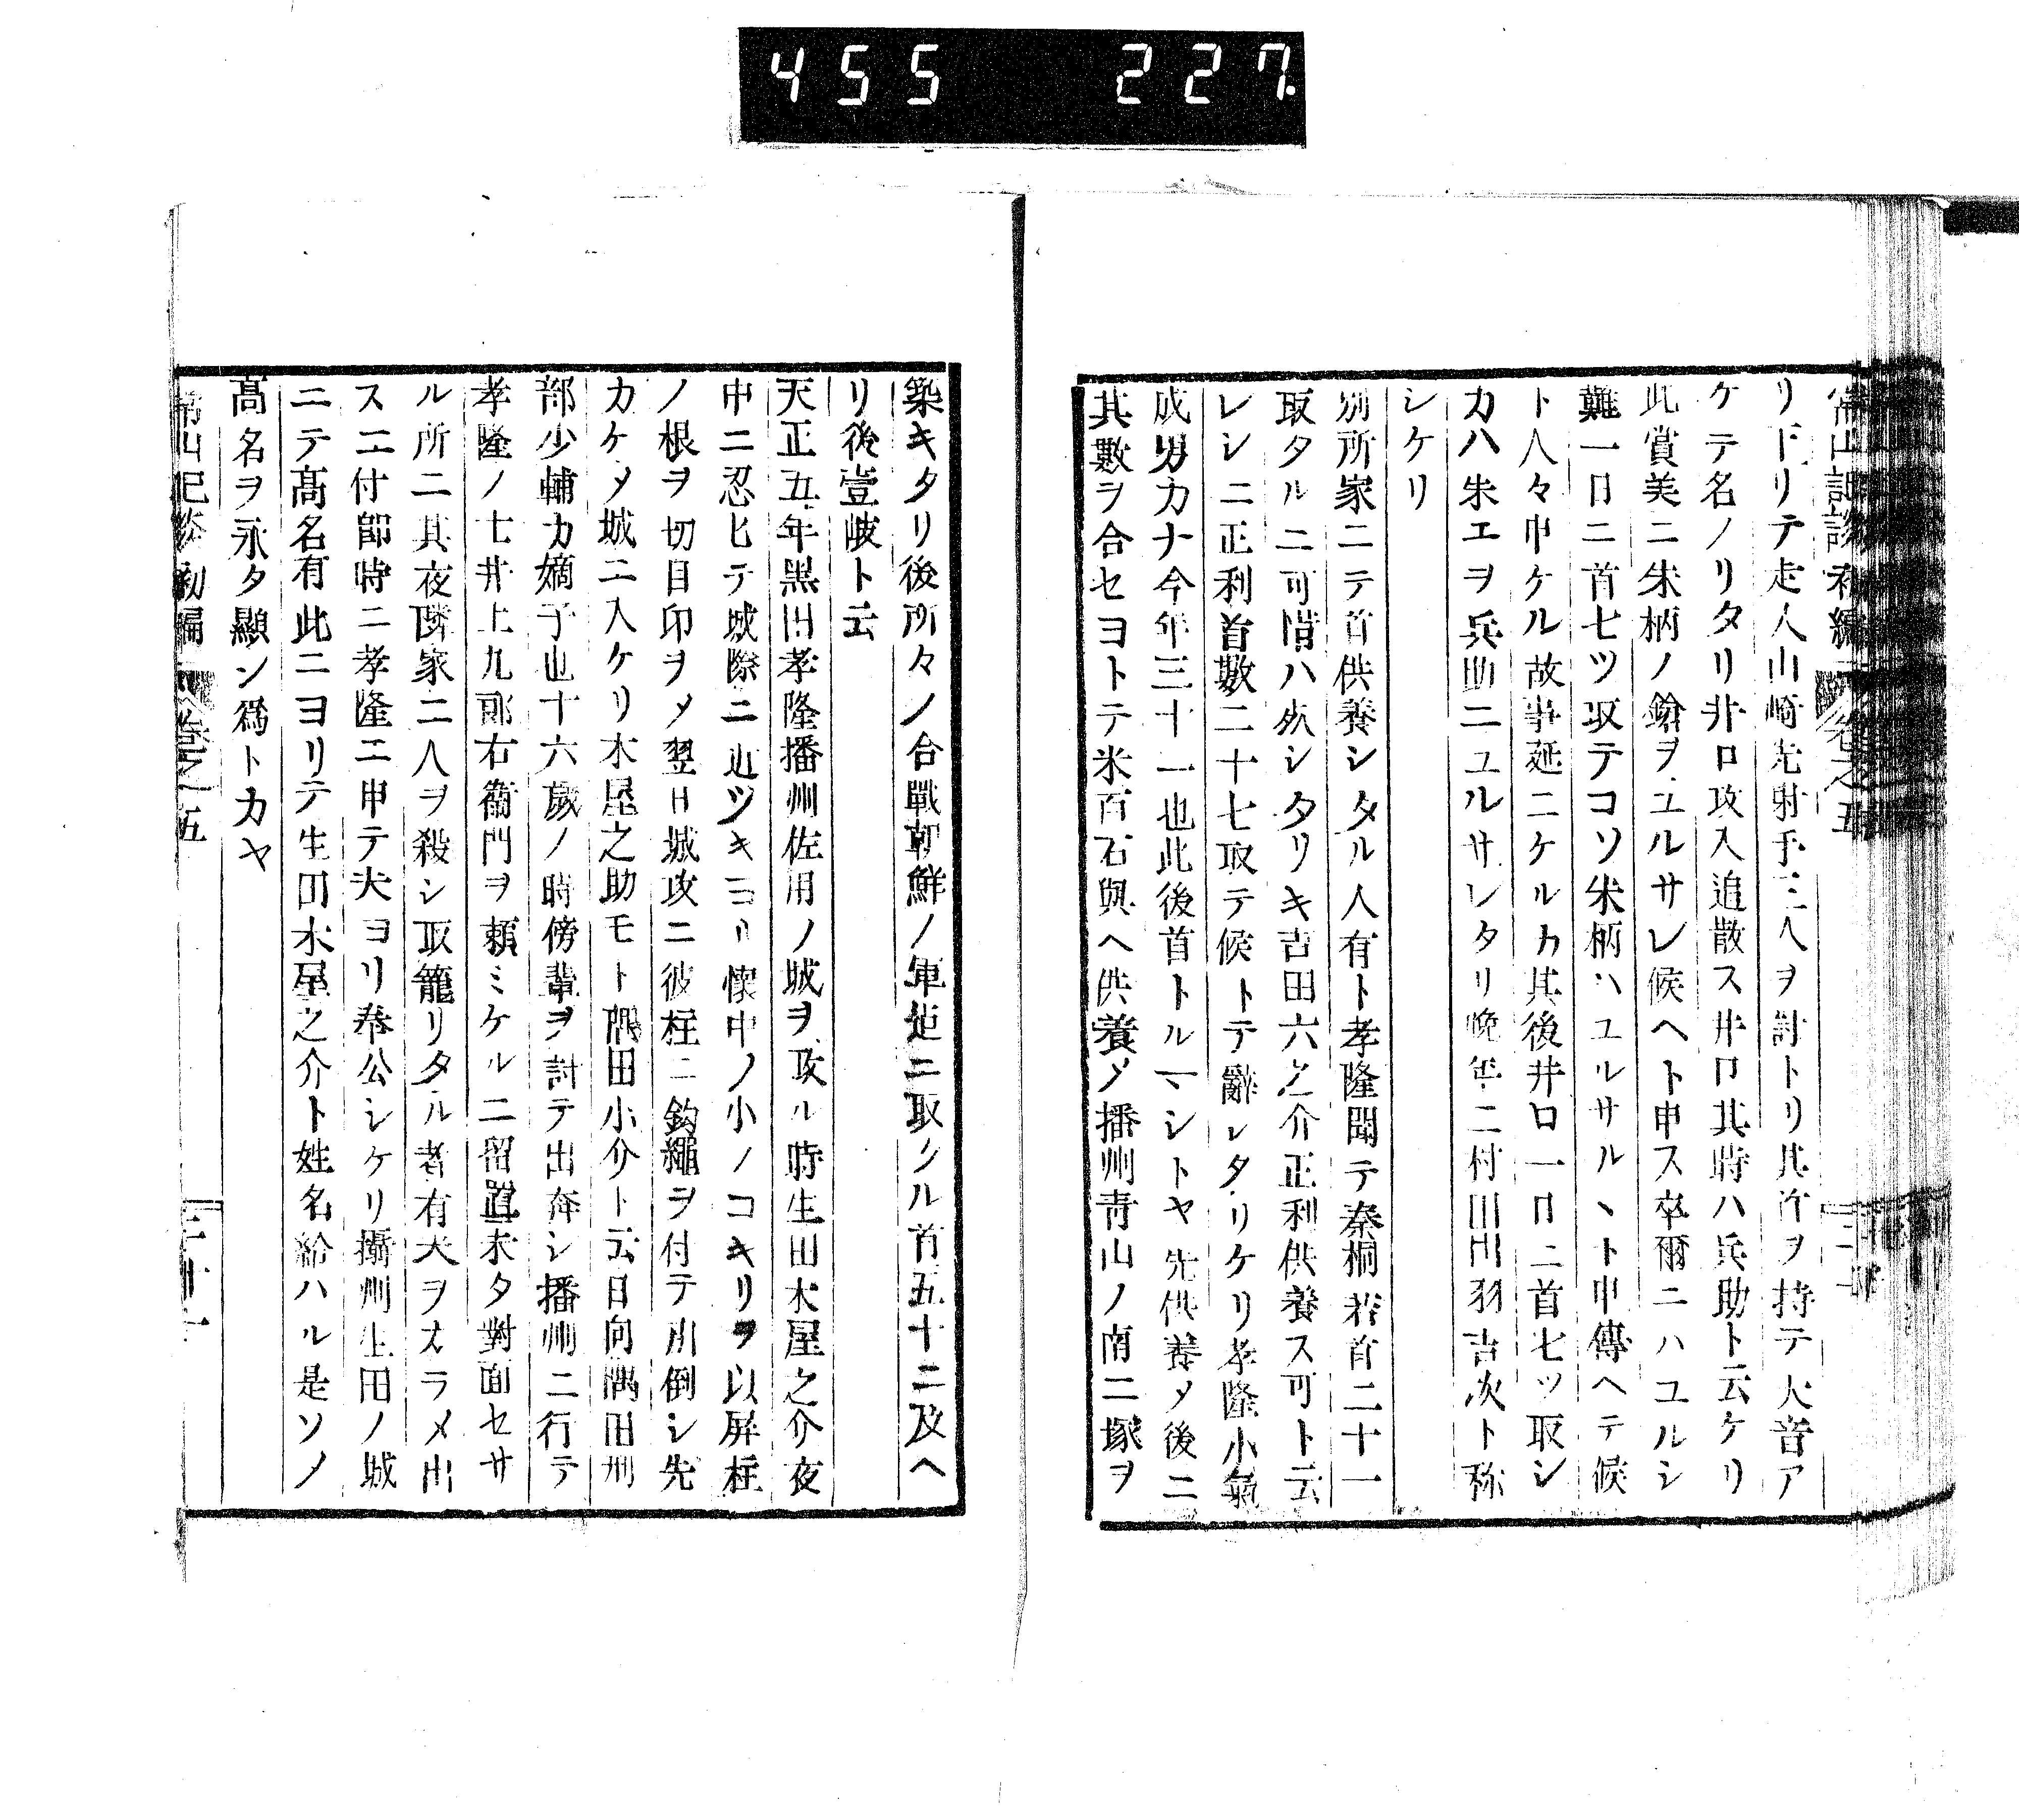 455 227
常山記談初編 卷之五
リ下リテ走人山崎先射手三人ヲ討トリ其首ヲ持テ大音ア
ケテ名ノリタリ井口攻入追散ス井口其時ハ兵助ト云ケリ
此賞美ニ朱柄ノ鎗ヲユルサレ候ヘト申ス卒爾ニハユルシ
難一日ニ首七ツ取テコソ朱柄ハユルサルヽト申傳ヘテ候
ト人々申ケル故事延ニケルカ其後井口一日ニ首七ツ取シ
カハ朱エヲ兵助ニユルサレタリ晩年ニ村田出羽吉次ト称
シケリ
別所家ニテ首供養シタル人有ト孝隆聞テ秦桐若首二十一
取タルニ可惜ハ死シタリキ吉田六之介正利供養ス可ト云
レシニ正利首數二十七取テ候トテ辭レタリケリ孝隆小氣
成男カナ今年三十一也此後首トルマシトヤ先供養メ後ニ
其數ヲ合セヨトテ米百石與ヘ供養メ播州青山ノ南ニ塚ヲ
築キタリ後所々ノ合戰朝鮮ノ軍迠ニ取シル首五十二及ヘ
リ後壹岐ト云
天正五年黒田孝隆播州佐用ノ城ヲ攻ル時生田木屋之介夜
中ニ忍ヒテ城際ニ近ツキヨリ懷中ノ小ノコキリヲ以屏柱
ノ根ヲ切目印ヲメ翌日城攻ニ彼柱ニ鈎繩ヲ付テ引倒シ先
カケメ城ニ入ケリ木屋之助モト隅田小介ト云日向隅田刑
部少輔カ嫡子也十六歳ノ時傍輩ヲ討テ出奔シ播州ニ行テ
孝隆ノ士井上九郎右衞門ヲ頼ミケルニ留置未タ對面セサ
ル所ニ其夜隣家ニ人ヲ殺シ取籠リタル者有夫ヲカラメ出
スニ付即時ニ孝隆ニ申テ夫ヨリ奉公シケリ攝州生田ノ城
ニテ髙名有此ニヨリテ生田木屋之介ト姓名給ハル是ソノ
髙名ヲ永タ顯ン爲トカヤ
常山記談初編 卷之五